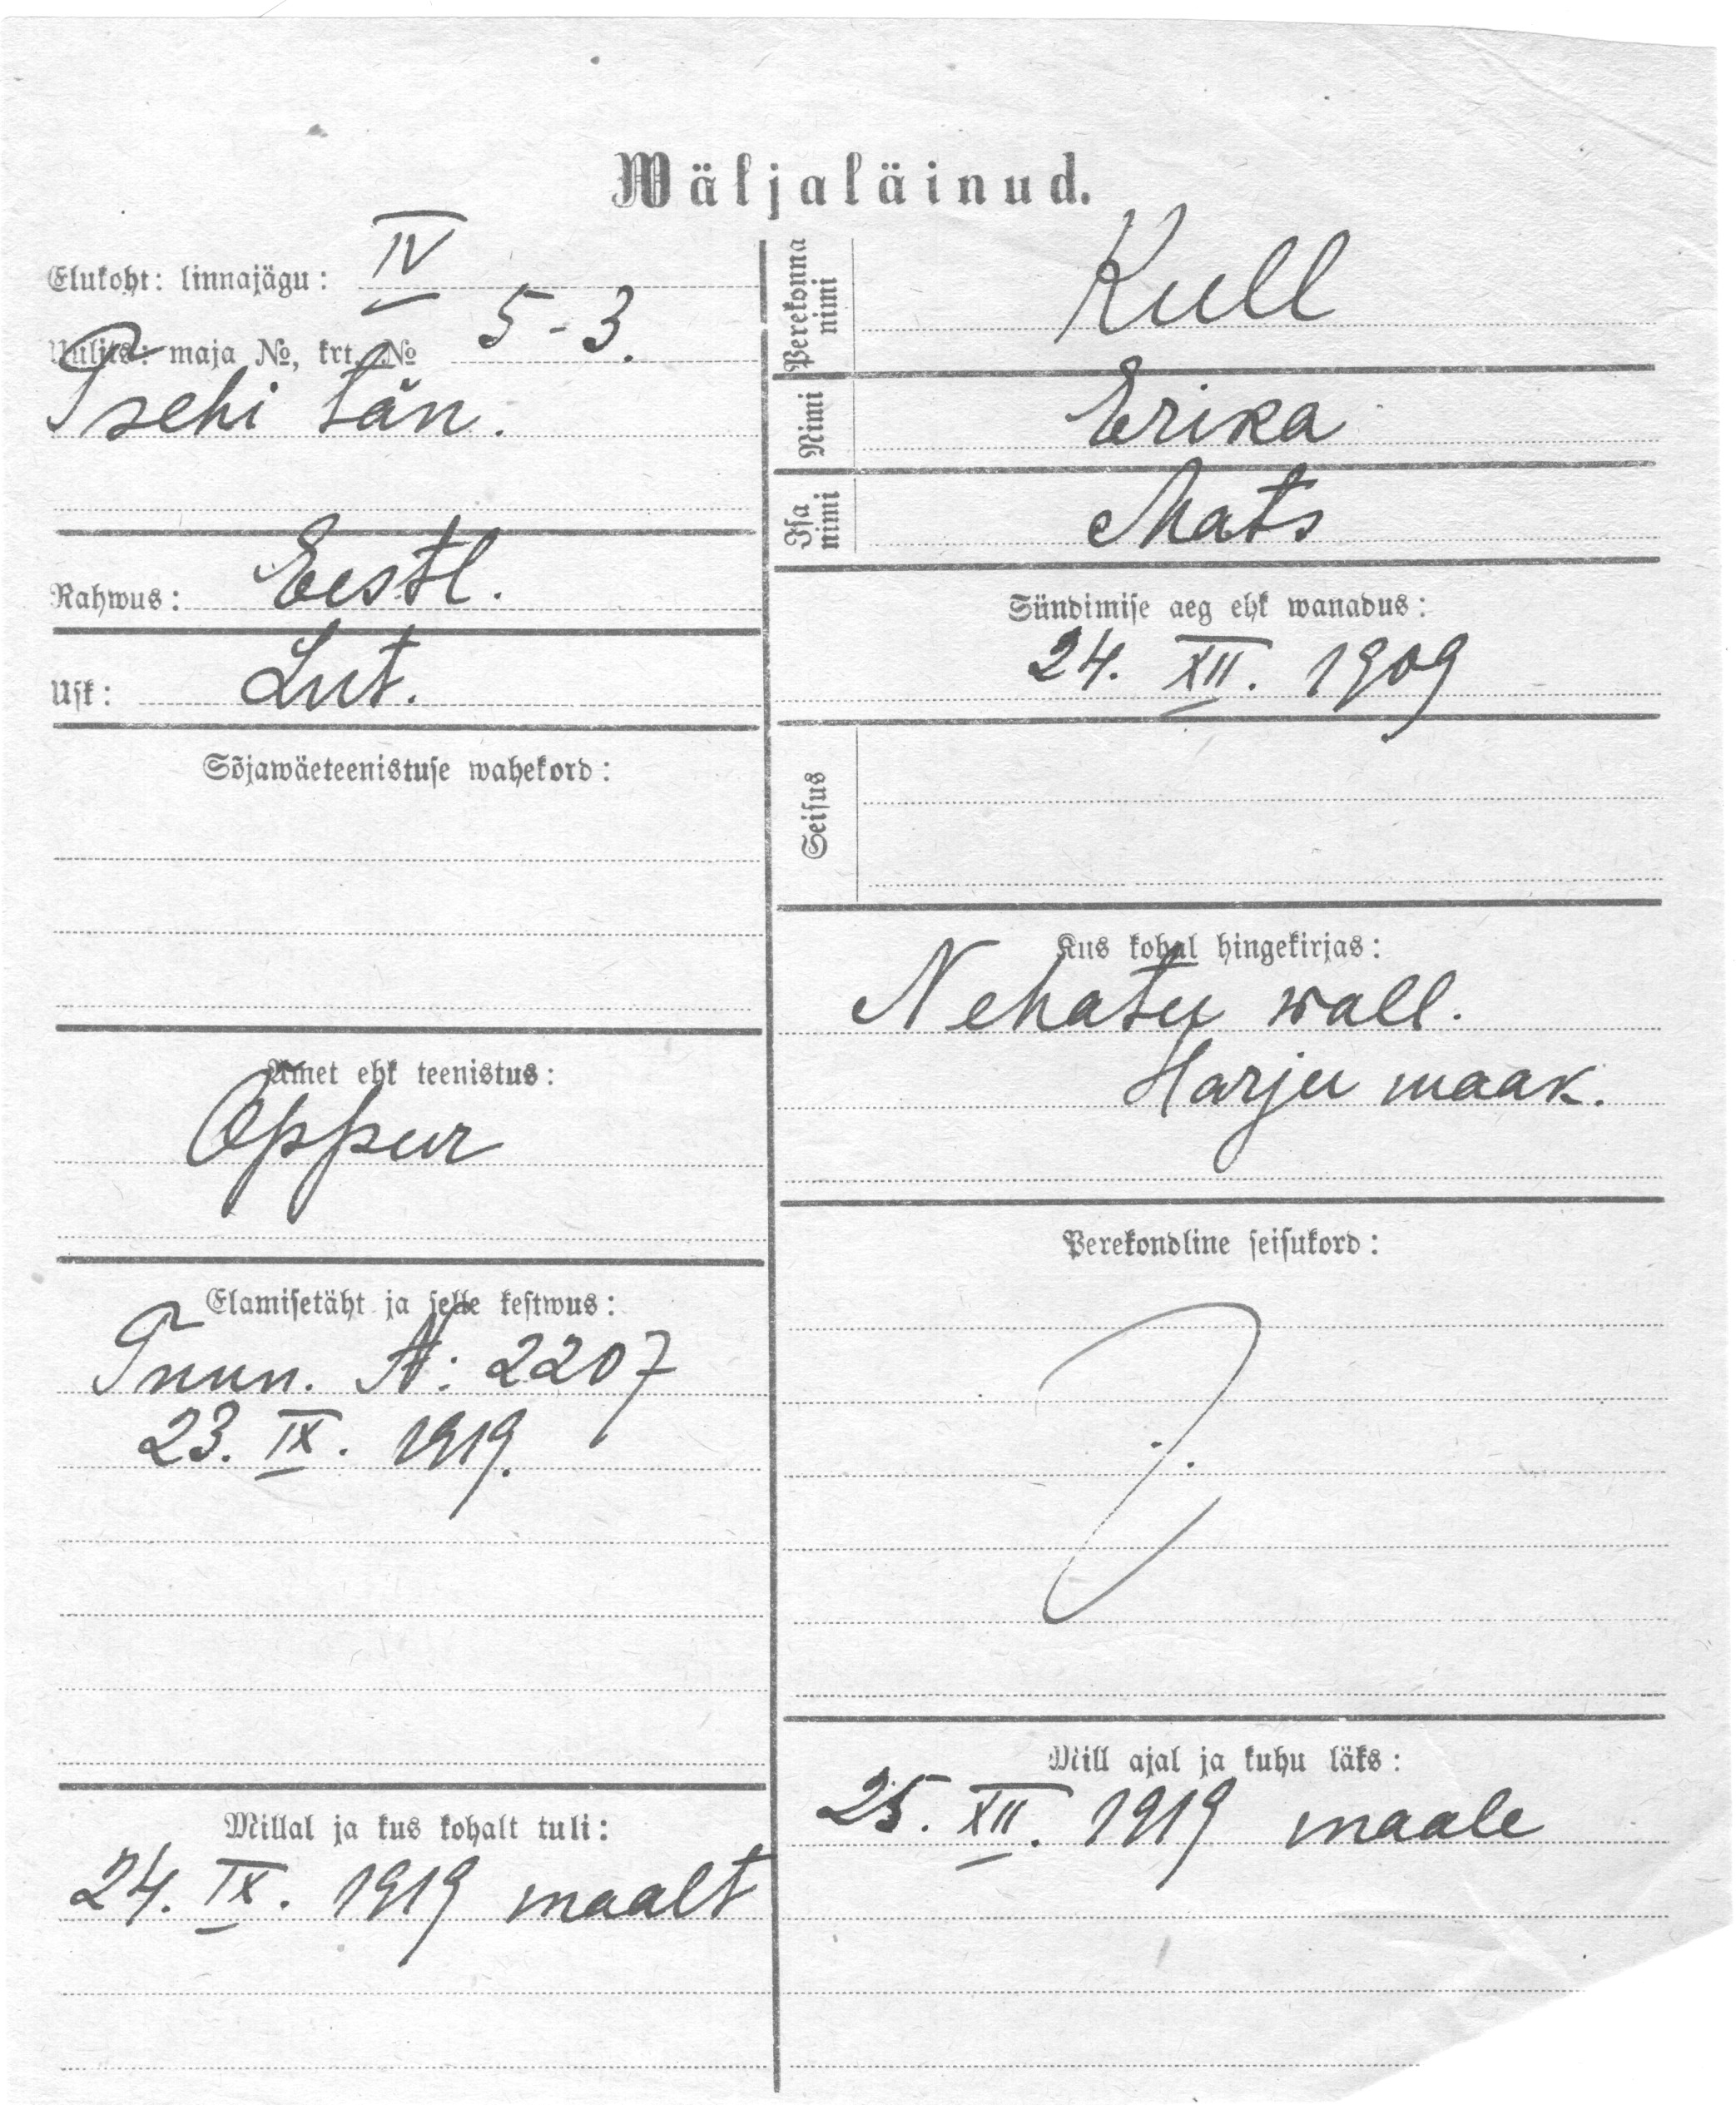 Wäljaläinud.
Elukoht: linnajägu: IV
Uulits: maja №, krt. № 5-3.
Tsehi tän.
Rahwus: Eestl.
Usk: Lut.
Sõjawäeteenistuse wahekord:
Amet ehk teenistus:
Õppur
Elamisetäht ja selle kestwus:
Tunn. N: 2207
23. IX. 1919.
Millal ja kus kohalt tuli:
24. IX. 1919 maalt
Perekonna nimi Kull
Nimi Erika
Isa nimi Mats
Sündimise aeg ehk wanadus:
24. XII. 1909
Seisus
Kus kohal hingekirjas:
Nehatu wall.
Harju maak.
Perekondline seisukord:
Mill ajal ja kuhu läks:
25. XII. 1919 maale